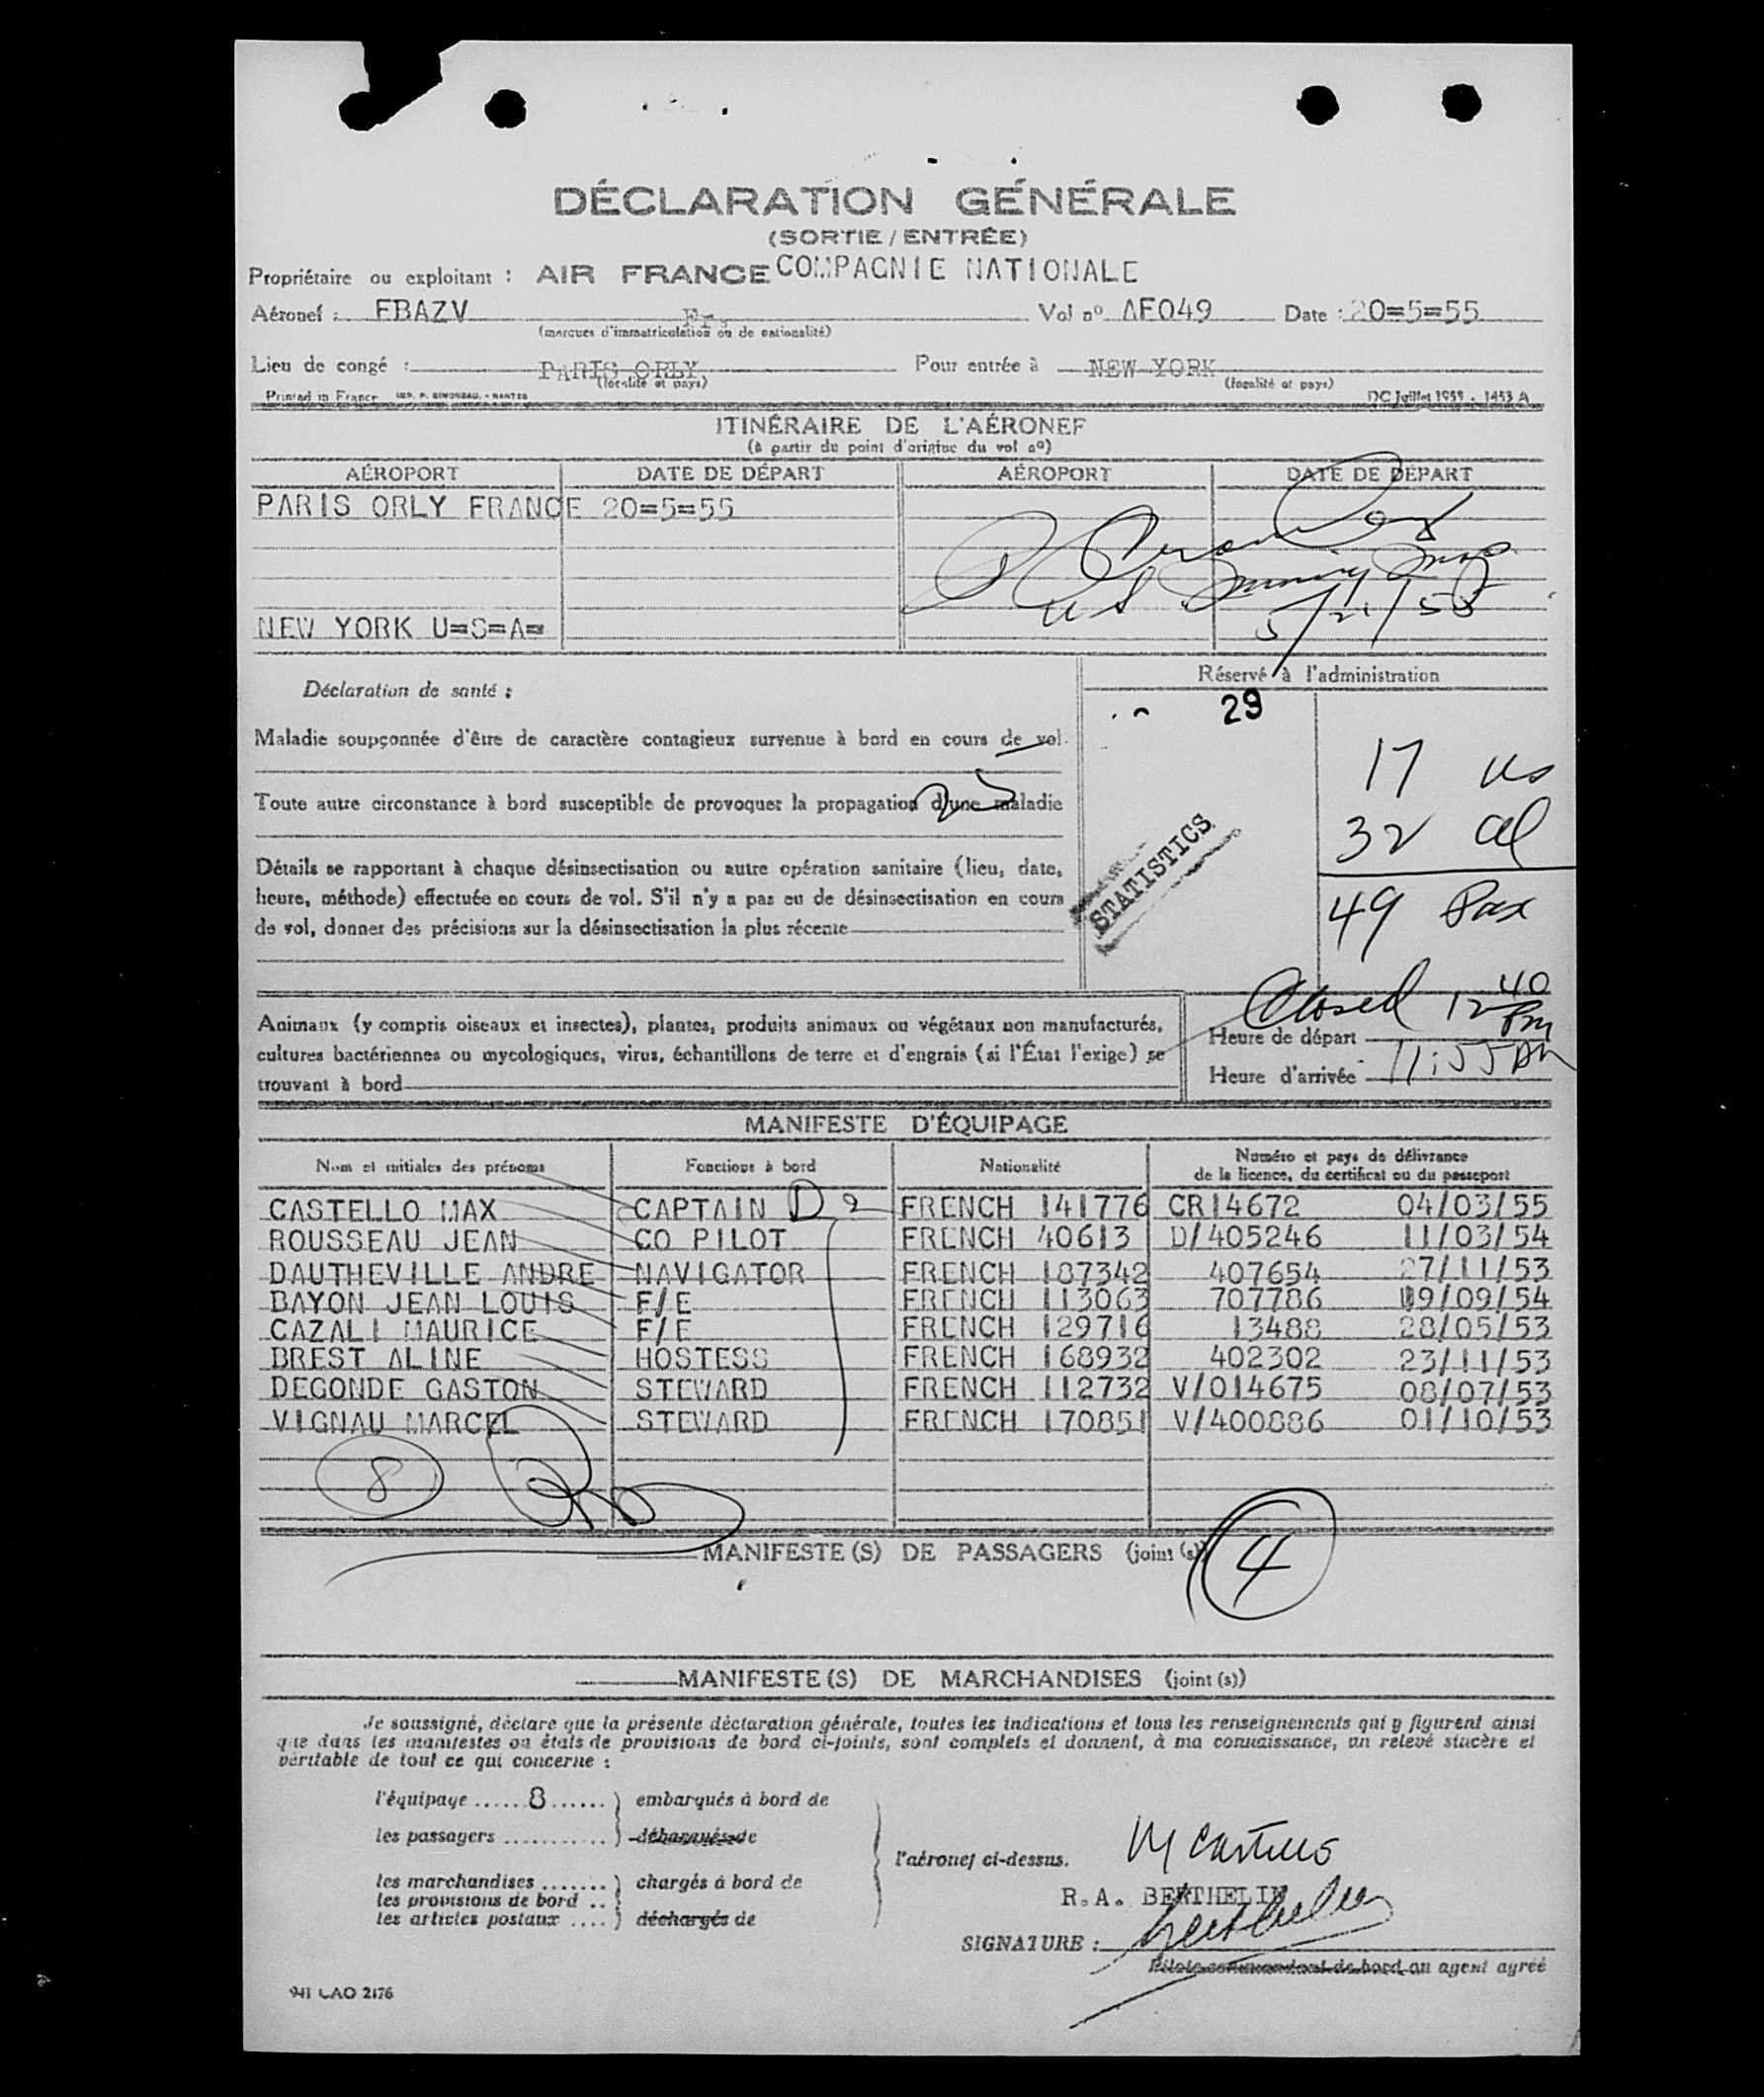 DÉCLARATION GÉNÉRALE
(SORTIE / ENTRÉE)
Propriétaire ou exploitant : AIR FRANCE COMPAGNIE NATIONALE
Aéronef : FBAZV Vol nº AF049 Date : 20=5=55
(marques d'immatriculation ou de nationalité)
Lieu de congé : PARIS ORLY, Pour entrée à NEW YORK
(localité et pays) (localité et pays)
Printed in France IMP. P. SIMONEAU. - NANTES DC Juillet 1953 . 1453 A
ITINÉRAIRE DE L'AÉRONEF
(à partir du point d'origine du vol nº)
AÉROPORT DATE DE DÉPART AÉROPORT DATE DE DÉPART
PARIS ORLY FRANCE 20=5=55
US
5/21/55
NEW YORK U=S=A=
Déclaration de santé : Réservé à l'administration
29
Maladie soupçonnée d'être de caractère contagieux survenue à bord en cours de vol
17 US
Toute autre circonstance à bord susceptible de provoquer la propagation d'une maladie
32 al
STATISTICS
Détails se rapportant à chaque désinsectisation ou autre opération sanitaire (lieu, date,
heure, méthode) effectuée en cours de vol. S'il n'y a pas eu de désinsectisation en cours
49 Pax
de vol, donner des précisions sur la désinsectisation la plus récente
Closed 12 40 Pm
Animaux (y compris oiseaux et insectes), plantes, produits animaux ou végétaux non manufacturés,
Heure de départ
cultures bactériennes ou mycologiques, virus, échantillons de terre et d'engrais (si l'État l'exige) se
trouvant à bord
Heure d'arrivée 11:55
MANIFESTE D'ÉQUIPAGE
Nom et initiales des prénoms Fonctions à bord Nationalité Numéro et pays de délivrance
de la licence, du certificat ou du passeport
CASTELLO MAX CAPTAIN D 2 FRENCH 141776 CR14672 04/03/55
ROUSSEAU JEAN CO PILOT FRENCH 40613 D/405246 11/03/54
DAUTHEVILLE ANDRE NAVIGATOR FRENCH 187342 407654 27/11/53
BAYON JEAN LOUIS F/E FRENCH 113063 707786 09/09/54
CAZALI MAURICE F/E FRENCH 129716 13488 28/05/53
BREST ALINE HOSTESS FRENCH 168932 402302 23/11/53
DEGONDE GASTON STEWARD FRENCH 112732 V/014675 08/07/53
VIGNAU MARCEL STEWARD FRENCH 170851 V/400886 01/10/53
8
MANIFESTE(S) DE PASSAGERS (joint(s)) 4
MANIFESTE(S) DE MARCHANDISES (joint(s))
Je soussigné, déclare que la présente déclaration générale, toutes les indications et tous les renseignements qui y figurent ainsi
que dans les manifestes ou états de provisions de bord ci-joints, sont complets et donnent, à ma connaissance, un relevé sincère et
véritable de tout ce qui concerne :
l'équipage ......8...... ) embarqués à bord de
les passagers ............ ) débarqués de
l'aéronef ci-dessus. M Castello
les marchandises ....... ) chargés à bord de
les provisions de bord ..
les articles postaux .... ) déchargés de
R.A. BERTHELIN
SIGNATURE : Berthelin
Pilote commandant de bord ou agent agréé
941 CAO 2176